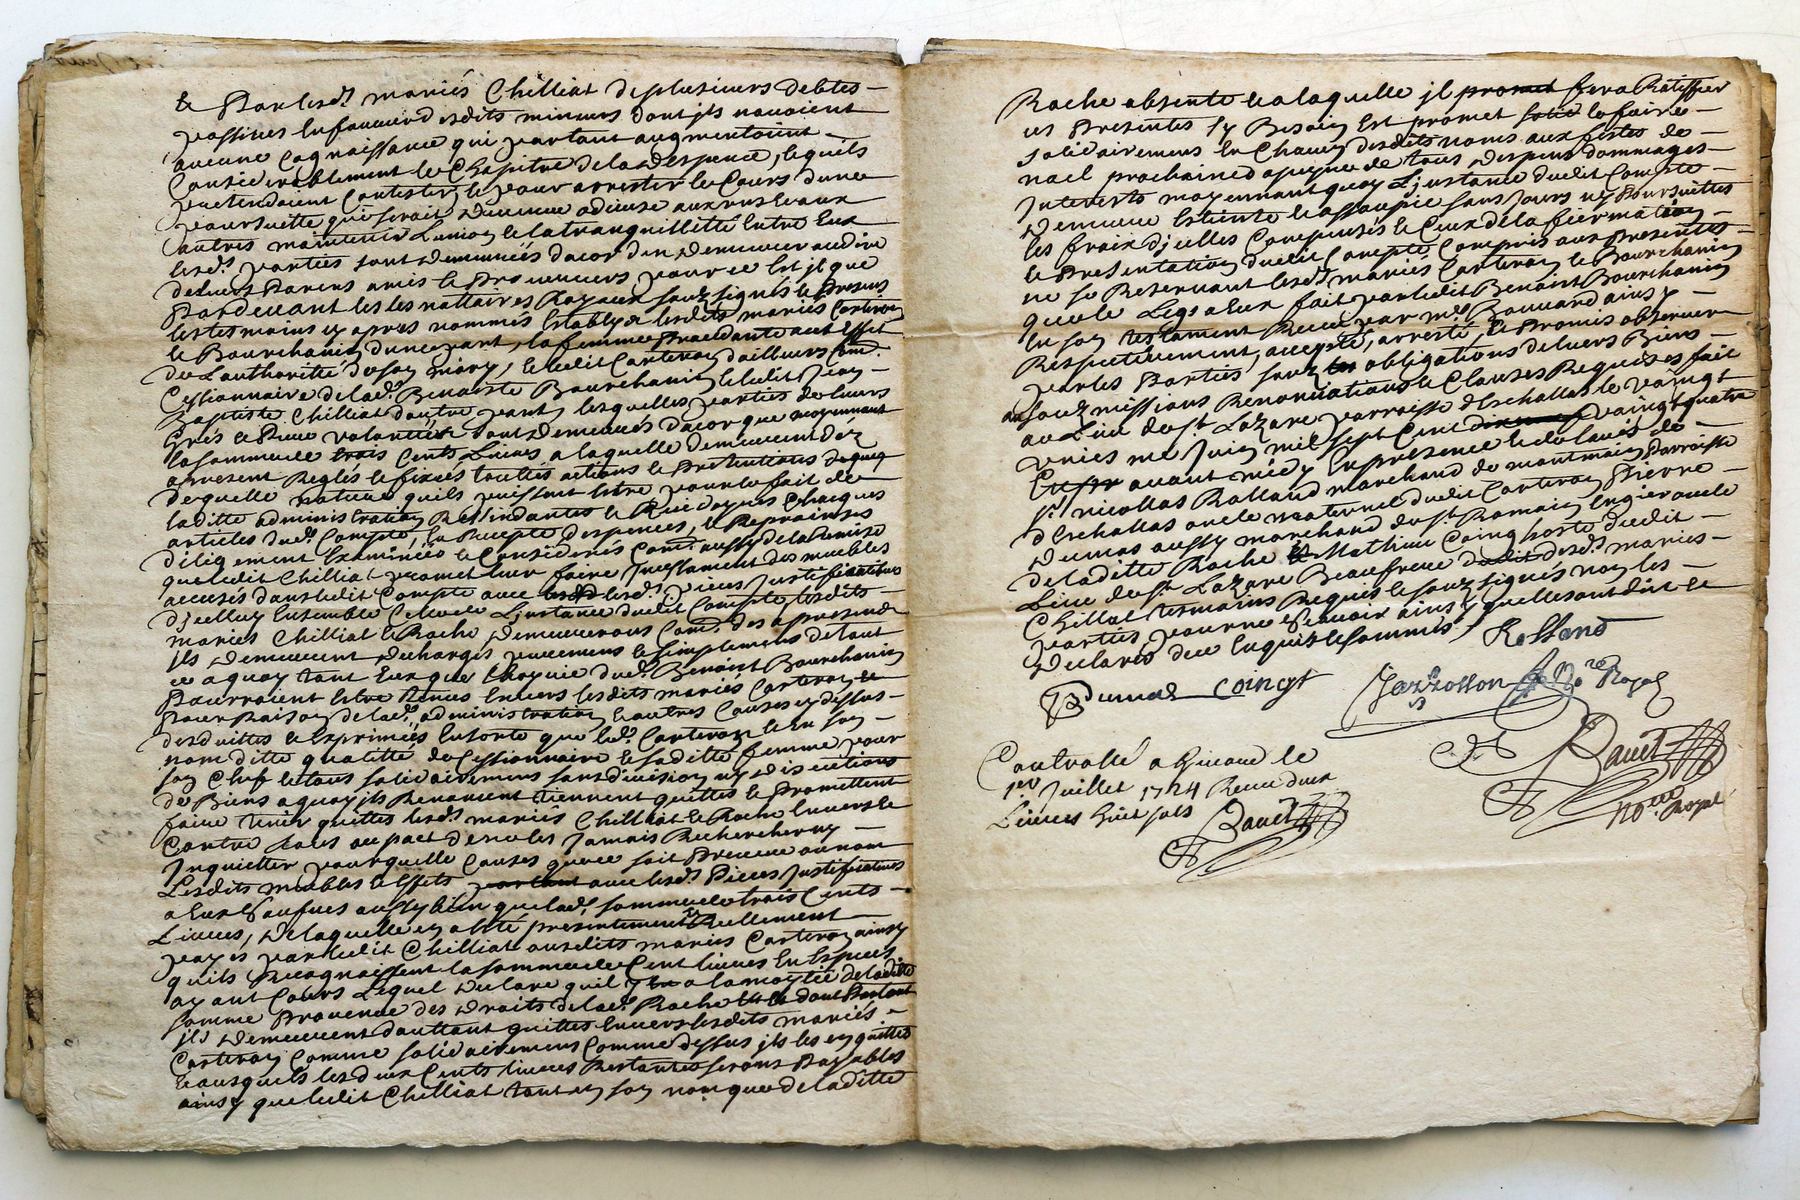 & Par lesd. mariés Chilliat de plusieurs debtes
passives En faveur desdits mineurs dont jls navoient
aucune Cognaissance qui partant augmentoient
Considerablement le Chapitre de la despence, lequels
pretendoient Contister, & pour arrester le Cours dune
poursuitte qui serait devenue odieuse aux uns & aux
autres maintenir Lunion & la tranquillitté Entre Eux
lesd. parties sont demeurées dacord en demeurer au dire
de leurs Parens amis & Pro
Pardevant les les nottaires Royaux souz signés & Presens
les tesmoins cy apres nommés Establys lesdits mariés Carteron
& Bourchanin dune part, la femme Procédante a cet Effet
de Lauthoritté de son mary, & ledit Carteron dailleurs Com.
Cessionnaire de lad. Benoiste Bourchanin & ledit Jean
Baptiste Chilliat dautre part, lesquelles parties de leurs
Grés & libre volontés sont demeurés dacor que moyennant
la somme de trois Cents Livres a laquelle demeurent déz
apresent Reglés & fixées touttes actions & Pretentions de quoy
de quelle nature quils puissent Estre pour le fait de
laditte administration Rescindantes & Rescisoires Chacques
articles dud. Compte, En Recepte despences, & Reprainses
diligement Examinées & Considerées Com. aussy de la Remise
que ledit Chilliat promet leur faire Jncessament des meubles
accusés dans ledit Compte avec lesd. pieces Justificatives
djcelluy Ensemble Celle de Linstance dudit Compte, lesdits
mariés Chilliat & Rache demeureront Com. des apresent
jls demeurent decharges purement & simplement de tout
ce a quoy tant Eux que Lhoyrie dud. Benoist Bourchanin
Pourroient Estre tenus Envers lesdits mariés Carteron &
Pour Raison de lad. administration & autres Causes cy dessus
desduittes & Exprimées En sorte que led. Carteron & En son
nom ditte qualitté de Cessionnaire & saditte femme pour
son Chef & tous solidairement sans division ny discutions
de Biens a quoy jls Renoncent tiennent quittes & Promettent
faire tenir quittes lesd. mariés Chilliat & Rache Envers &
Contre tous au pact de ne les Jamais Rechercher ny
Jnquietter pour quelle Causes que ce soit Preneue ou non
Lesdits meubles & Effets avec lesd. Pieces Justificatives
a Eux Saufues aussy bien que lad. somme de trois Cents
Livres, de laquelle en a Esté presentement & Reellement
payés par ledit Chilliat ausdits mariés Carteron ainsy
quils Recognaissent la somme de Cent livres En Espèces
ayant Cours Lequel declare quil y en a la moytié de laditte
somme Provenue des droits de lad. Rache dont Partant
jls demeurent dauttant quittes Envers lesdits mariés
Carteron Comme solidairement Comme dessus jls les en quittes
& ausquels les deux Cents livres Restantes seront Payables
ainsy que ledit Chilliat tant en son nom que de laditte
Rache absente & a laquelle jl promet fera Ratiffier
ces Presentes sy Besoin Est promet solid le faire
solidairement En Chacun desdits noms aux festes de
nael prochaine a peyne de tous despens dommages
Jnterests moyennant quoy Linstance dudit Compte
demeure Esteinte & assoupie sans Jours ny Poursuittes
les fraix djcelles Compensés & Ceux de la fiermation
& Presentation dudit Compte Compris aux Presentes
ne se Reservant lesd. mariés Carteron & Bourchanin
que le Legs a Eux fait par ledit Benoist Bourchanin
En son testament Receu par me. Bonnard ainsy
Respectivement, accepté, arresté, & Promis observer
par les Parties souz les obligations de leurs Biens
souzmissions Renonciations & Clauses Requises fait
au Lieu de st. Lazare parroisse dEschallas le vaingt
unies me Juin mil sept Cent vaingt quatre
avant midy En presence de
sr. nicollas Rolland marchand de montmain Parroisse
dEschallas oncle maternel dudit Carteron Pierre
Dumas aussy marchand de st. Romain En gier oncle
de laditte Rache & Mathieu Coing hoste dudit
Lieu de st. Lazare Beaufrere desd. mariés
Chilliat tesmoins Requis & souz signés non les
parties pour ne sçavoir ainsy quelles ont dit &
Declarés de ce Enquis & sommés /. Rolland
P Dumas Coingt Royal
Bauet
no.re Royal
Controllé a Givord le
1er Juillet 1724 Receu deux
Livres huit sols
Bauet